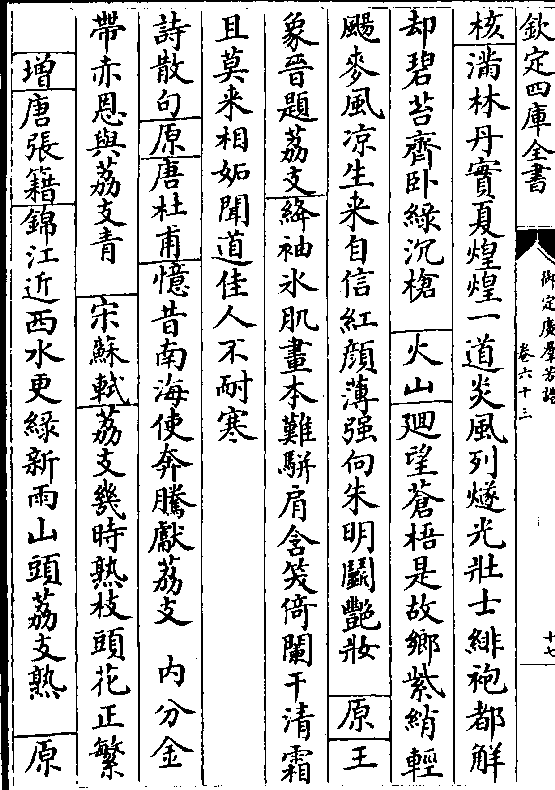 欽定四庫全書
御定廣羣芳譜
卷六十三
十七
核滿林丹實夏煌煌一道炎風列燧光壯士緋袍都解
却碧苔齊卧綠沉槍 火山廻望蒼梧是故鄉紫綃輕
颺麥風凉生来自信紅顔薄强向朱明鬭艷妝 原王
象晉題荔支絳袖氷肌畫本難駢肩含笑倚闌干清霜
且莫来相妬聞道佳人不耐寒
詩散句原唐杜甫憶昔南海使奔騰獻荔支 内分金
帶赤恩與荔支青 宋蘇軾荔支幾時熟枝頭花正繁
增唐張籍錦江近西水更綠新雨山頭荔支熟 原